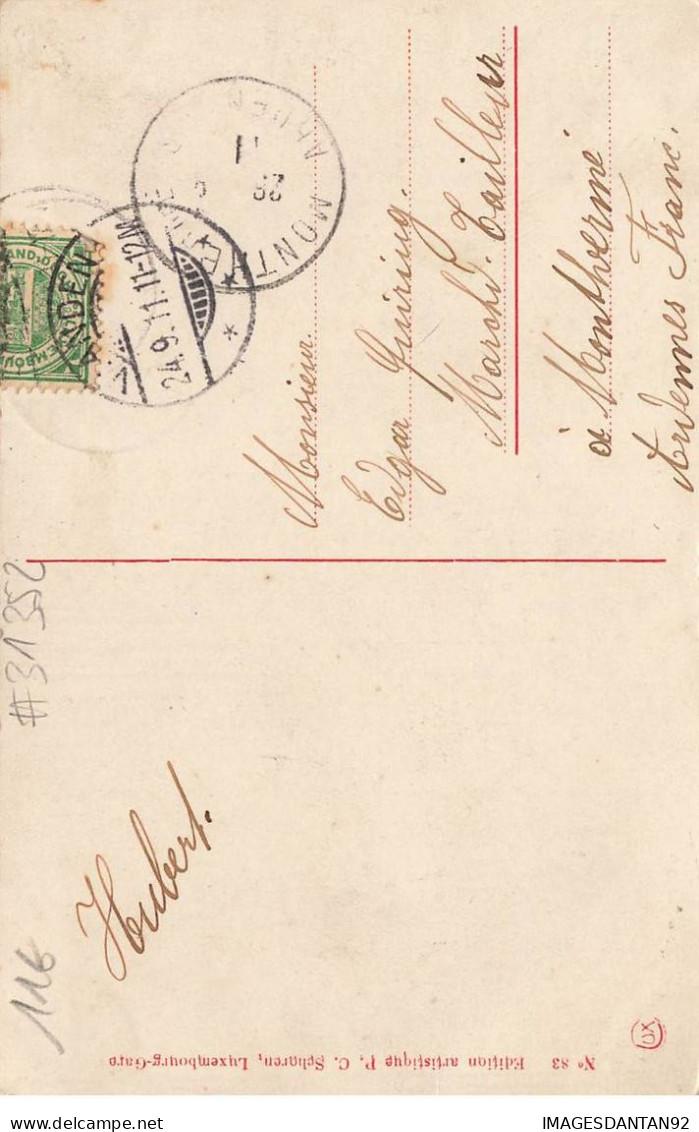 VIANDEN
24.9.11.11-12N
MONTHERMÉ
ARDEN
26
11
Monsieur
Edgar Guiring.
Marchd. Tailleur
à Monthermé
Ardennes Franc.
#31352
Hubert.
116
Nº 83 Edition artistique P. C. Schoren, Luxembourg-Gare
IMAGESDANTAN92